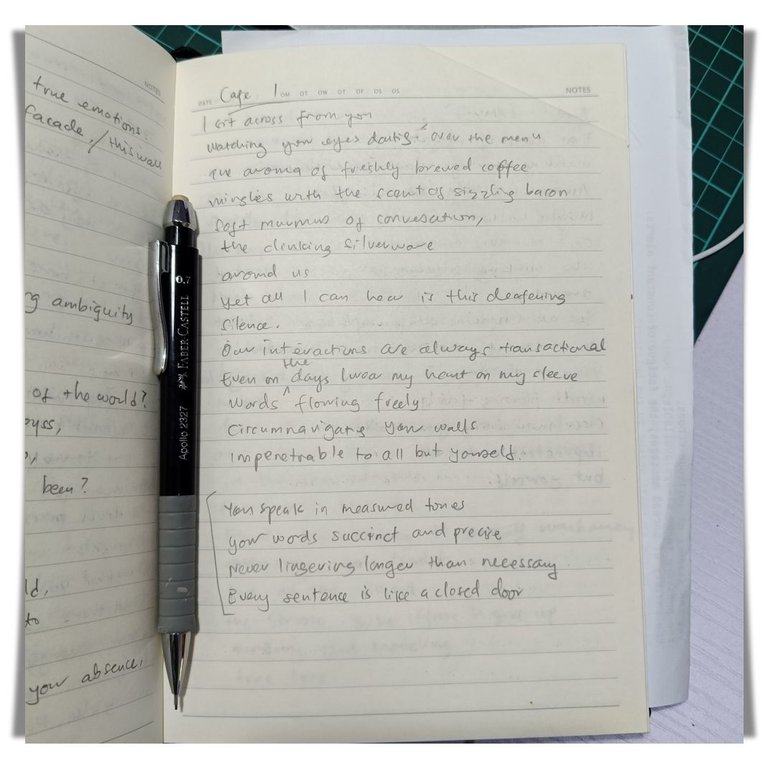 NOTES
true emotions.
facade. / this wall
ambiguity
of the world?
been?
to
your absence.
0.7
FABER CASTELL
Apollo 2327
DATE
Cafe 1
NOTES
I sit across from you
watching your eyes darting over the menu
The aroma of freshly brewed coffee
mingles with the scent of sizzling bacon
Soft murmurs of conversation,
the clinking silverware
around us
Yet all I can hear is this deafening
silence.
Our interactions are always transactional
Even on the days I wear my heart on my sleeve
Words flowing freely
Circumnavigating your walls
Impenetrable to all but yourself.
You speak in measured tones
your words succinct and precise
Never lingering longer than necessary
Every sentence is like a closed door